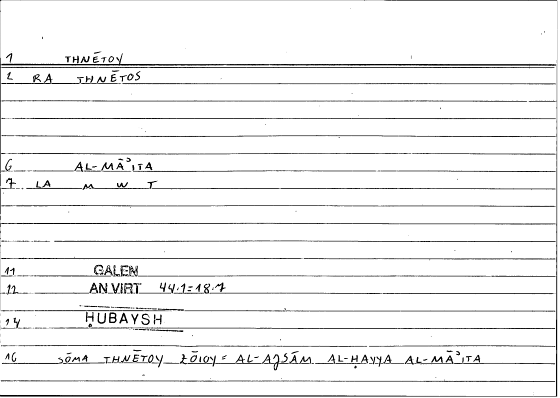 1 THNĒTOY
2 RA THNĒTOS
6 AL-MĀʾITA
7 LA M W T
11 GALEN
12 AN VIRT 44.1=18.7
14 ḤUBAYSH
16 SŌMA THNĒTOY ZŌIOY = AL-AǦSĀM AL-ḤAYYA AL-MĀʾITA